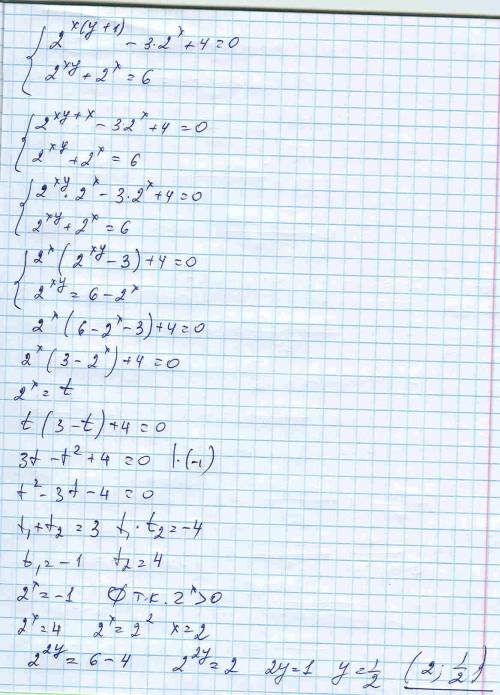 { 2^{x(y+1)} - 3·2^x + 4 = 0
2^{xy} + 2^x = 6
{ 2^{xy+x} - 3 2^x + 4 = 0
2^{xy} + 2^x = 6
{ 2^{xy} · 2^x - 3·2^x + 4 = 0
2^{xy} + 2^x = 6
{ 2^x (2^{xy} - 3) + 4 = 0
2^{xy} = 6 - 2^x
2^x (6 - 2^x - 3) + 4 = 0
2^x (3 - 2^x) + 4 = 0
2^x = t
t (3 - t) + 4 = 0
3t - t² + 4 = 0 |·(-1)
t² - 3t - 4 = 0
t₁ + t₂ = 3 t₁ · t₂ = -4
t₁ = -1 t₂ = 4
2^x = -1 ∅ т.к. 2^x > 0
2^x = 4 2^x = 2² x = 2
2^{2y} = 6 - 4 2^{2y} = 2 2y = 1 y = 1/2 (2; 1/2)